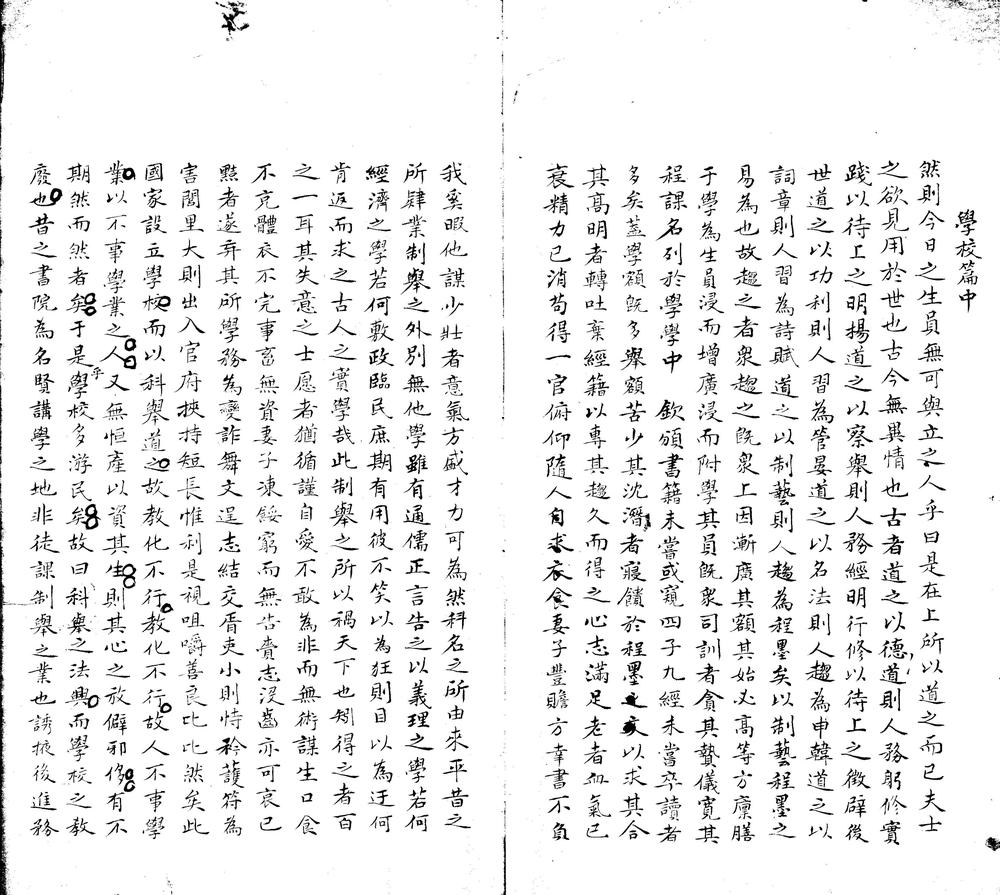 學校篇中
然則今日之生員無可與立之人乎曰是在上所以道之而已夫士
之欲見用於世也古今無異情也古者道之以德道則人務躬修實
踐以待上之明揚道之以察舉則人務經明行修以待上之徵辟後
世道之以功利則人習為管晏道之以名法則人趨為申韓道之以
詞章則人習為詩賦道之以制藝則人趨為程墨矣以制藝程墨之
易為也故趨之者衆趨之既衆上因漸廣其額其始必高等方廩膳
于學為生員浸而增廣浸而附學其員既衆司訓者貪其贄儀寬其
程課名列於學學中 欽頒書籍未嘗或窺四子九經未嘗卒讀者
多矣蓋學額既多舉額苦少其沈潛者寢饋於程墨之文以求其合
其高明者轉吐棄經籍以專其趨久而得之心志滿足老者血氣已
衰精力已消苟得一官俯仰隨人自求衣食妻子豐贍方幸書不負
我奚暇他謀少壯者意氣方盛才力可為然科名之所由來平昔之
所肄業制舉之外別無他學雖有通儒正言告之以義理之學若何
經濟之學若何敷政臨民庶期有用彼不笑以為狂則目以為迂何
肯返而求之古人之實學哉此制舉之所以禍天下也矧得之者百
之一耳其失意之士愿者猶循謹自愛不敢為非而無術謀生口食
不克體衣不完事畜無資妻子凍餒窮而無告賫志沒齒亦可哀已
黠者遂弃其所學務為變詐舞文逞志結交胥吏小則恃衿護符為
害閭里大則出入官府挾持短長惟利是視咀嚼善良比比然矣此
國家設立學校而以科舉道之故教化不行教化不行故人不事學
業以不事學業之人又無恒產以資其生則其心之放僻邪侈有不
期然而然者矣于是乎學校多游民矣故曰科舉之法興而學校之教
廢也昔之書院為名賢講學之地非徒課制舉之業也誘掖後進務